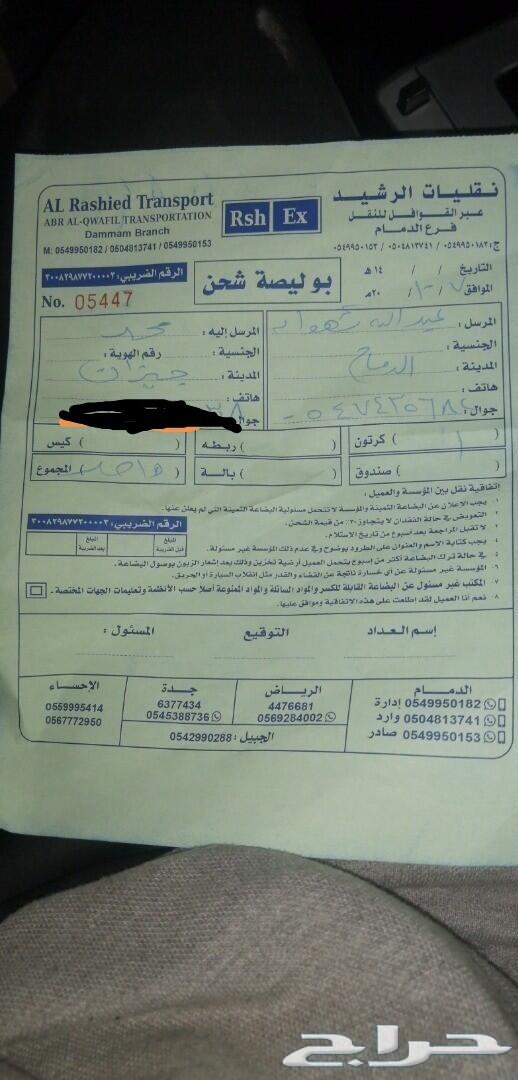 AL Rashied Transport
ABR AL-QWAFIL TRANSPORTATION
Dammam Branch
M: 0549950182 / 0504813741 / 0549950153
Rsh Ex
نقليات الرشيد
عبر القوافل للنقل
فرع الدمام
ج: ٠٥٤٩٩٥٠١٨٢ / ٠٥٠٤٨١٣٧٤١ / ٠٥٤٩٩٥٠١٥٣
الرقم الضريبي: ٣٠٠٨٢٩٨٧٧٢٠٠٠٠٣
No. 05447
بوليصة شحن
التاريخ / / ١٤ هـ
الموافق / / ٢٠ م
المرسل: عبدالله
الجنسية:
المدينة: الدمام
هاتف:
جوال:
المرسل إليه: محمد
الجنسية: رقم الهوية:
المدينة: جيزان
هاتف:
جوال:
كرتون ( ١ )
ربطه ( )
كيس ( )
صندوق ( )
بالة ( )
المجموع ( واحد )
إتفاقية نقل بين المؤسسة والعميل:
١- يجب الاعلان عن البضاعة الثمينة والمؤسسة لا تتحمل مسئولية البضاعة الثمينة التي لم يعلن عنها.
٢- التعويض في حالة الفقدان لا يتجاوز ٢٠٪ من قيمة الشحن.
٣- لا تقبل المراجعة بعد اسبوع من تاريخ الاستلام.
٤- يجب كتابة الاسم والعنوان على الطرود بوضوح وفي عدم ذلك المؤسسة غير مسئولة.
٥- في حالة ترك البضاعة أكثر من إسبوع يتحمل العميل أرضية تخزين وذلك بعد إشعار الزبون بوصول البضاعة.
٦- المؤسسة غير مسئولة عن أي خسارة ناتجة عن القضاء والقدر مثل انقلاب السيارة أو الحريق.
٧- المكتب غير مسئول عن البضاعة القابلة للكسر والمواد السائلة والمواد الممنوعة أصلا حسب الأنظمة وتعليمات الجهات المختصة.
٨- نعم أنا العميل لقد إطلعت على هذه الاتفاقية وموافق عليها.
الرقم الضريبي: ٣٠٠٨٢٩٨٧٧٢٠٠٠٠٣
المبلغ قبل الضريبة
المبلغ بعد الضريبة
إسم العداد
التوقيع
المسئول:
الدمام
0549950182 إدارة
0504813741 وارد
0549950153 صادر
الرياض
4476681
0569284002
جدة
6377434
0545388736
الأحساء
0559995414
0567772950
الجبيل: 0542990288
حراج